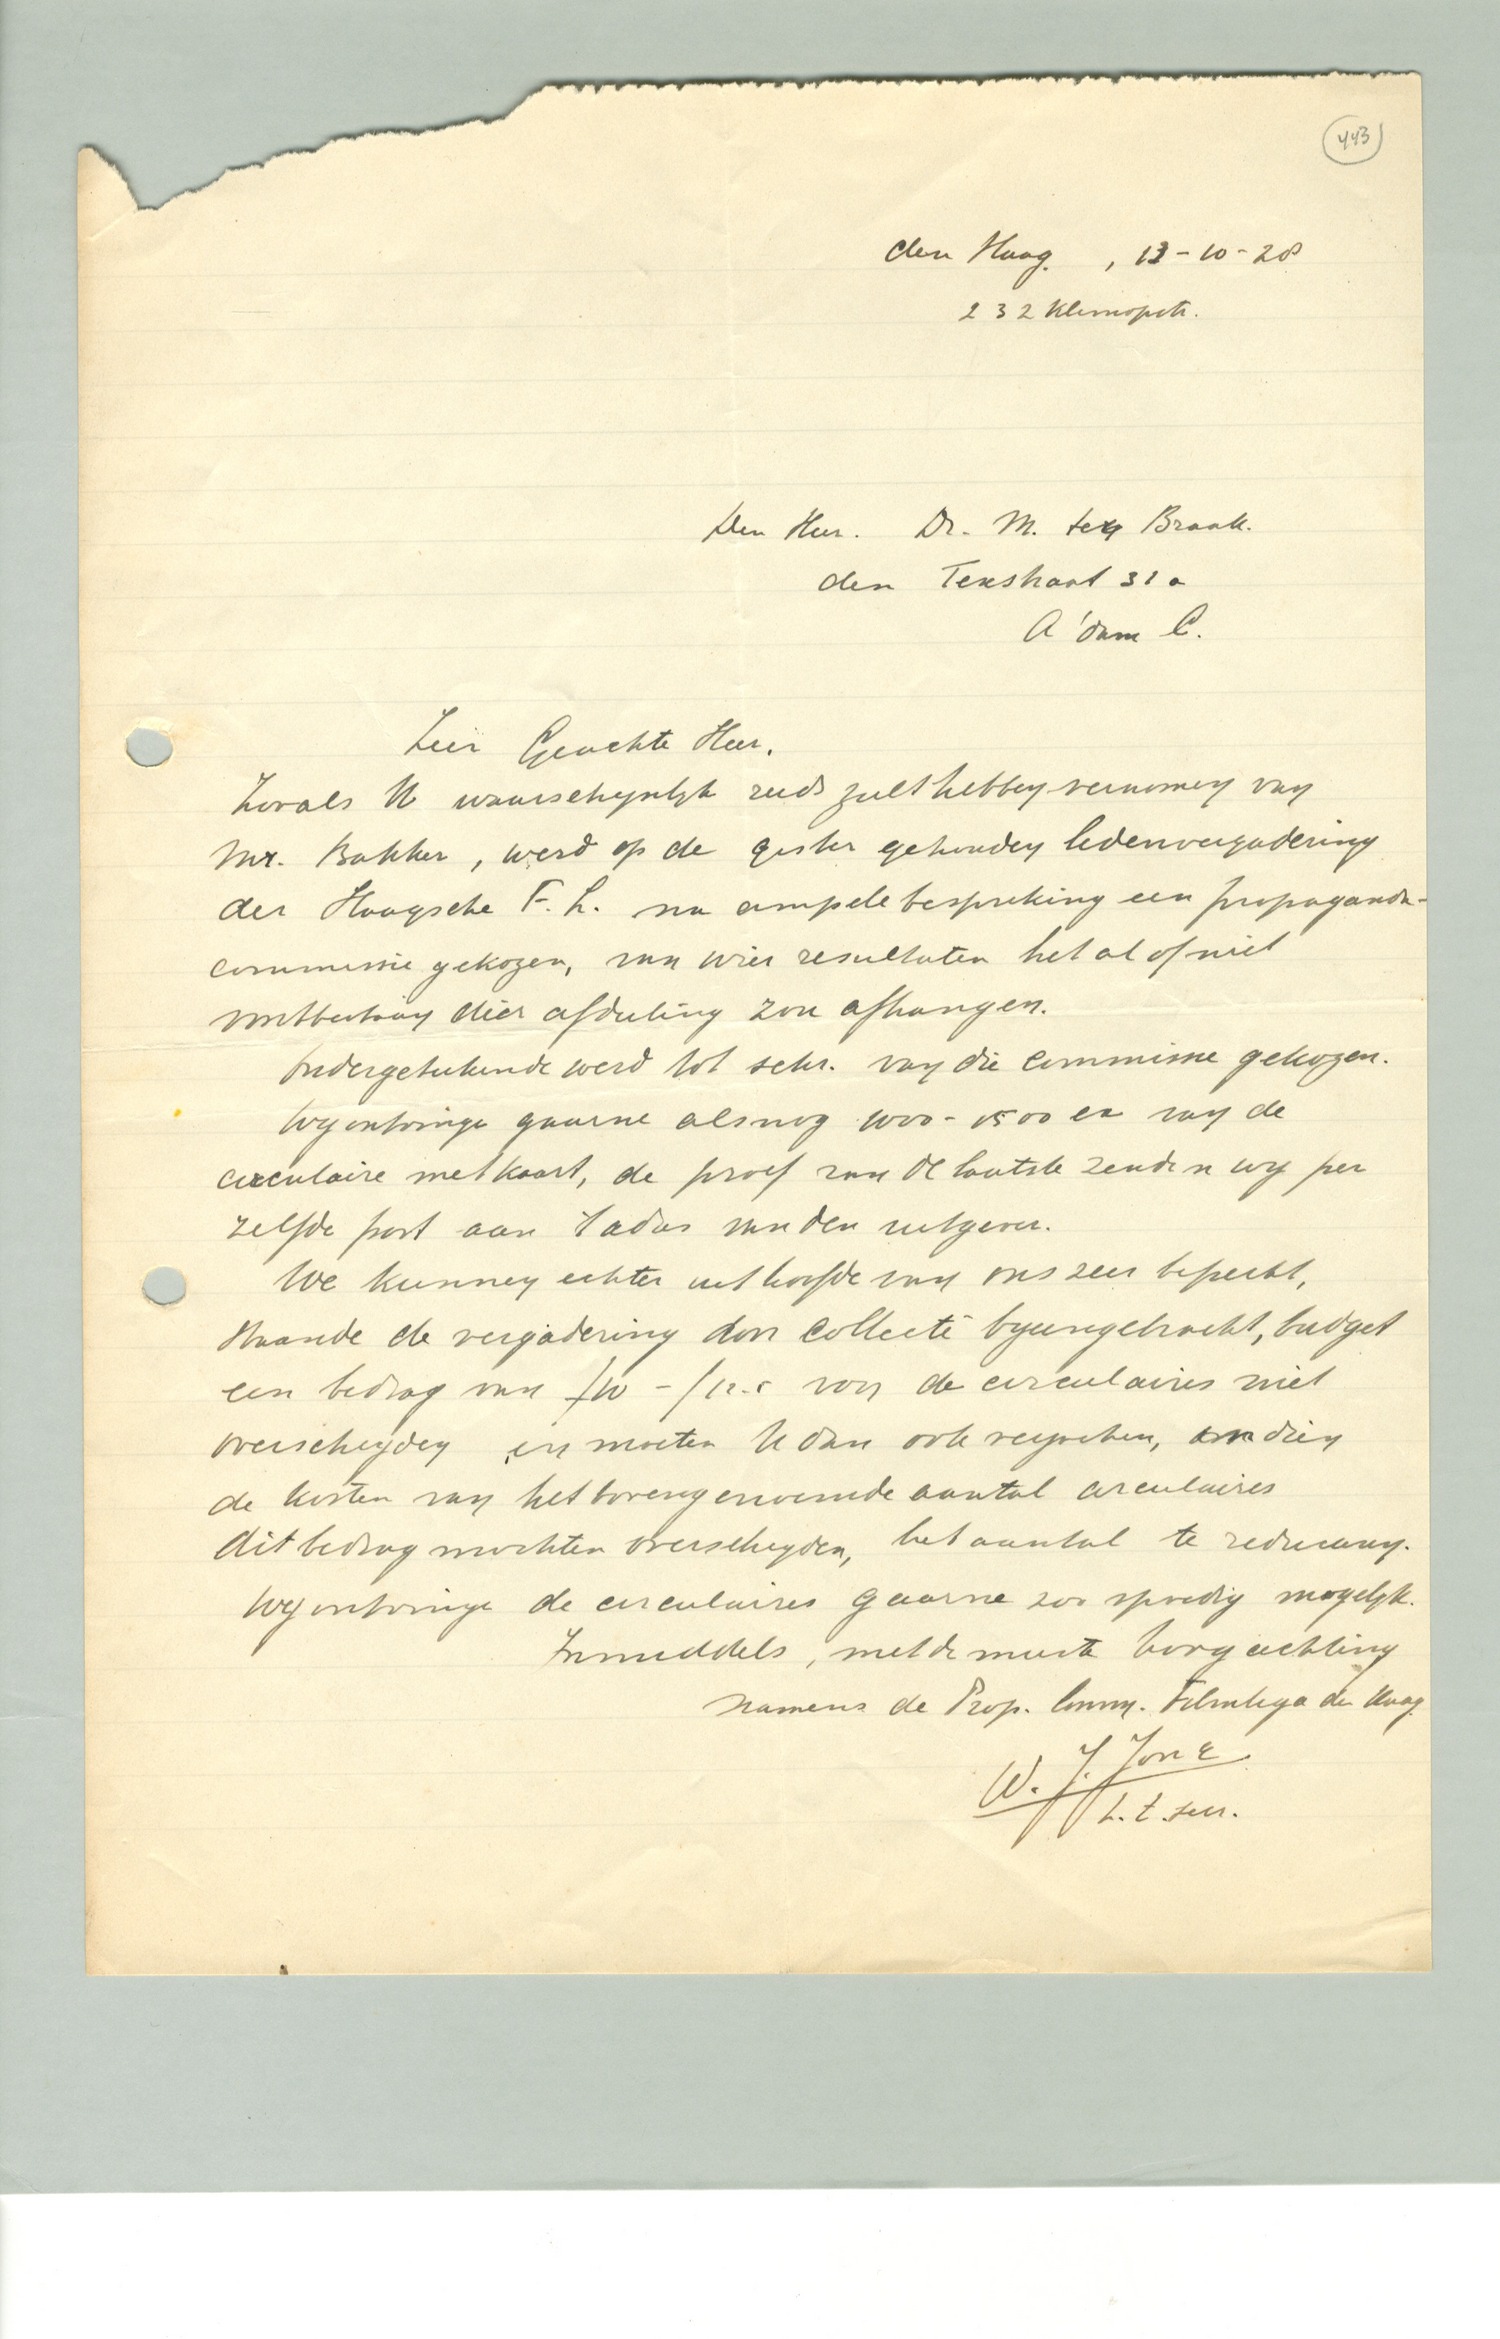 443
den Haag. , 13-10-28
232 Klimopstr.
Den Heer. Dr. M. ter Braak.
den Texstraat 31a
A'dam C.
Zeer Geachte Heer,
Zooals U waarschynlyk reeds zult hebben vernomen van
Mr. Bakker, werd op de gister gehouden ledenvergadering
der Haagsche F.L. na ampele bespreking een propaganda-
commissie gekozen, van wier resultaten het al of niet
voortbestaan dier afdeeling zou afhangen.
Ondergeteekende werd tot secr. van die commissie gekozen.
Wy ontvingen gaarne alsnog 1000-1500 ex van de
circulaire met kaart, de proef van de laatste zenden wy per
zelfde post aan 't adres van den uitgever.
We kunnen echter uit hoofde van ons zeer beperkt,
staande de vergadering door collecte byeengebracht, budget
een bedrag van f10 - f12.5 voor de circulaires niet
overschryden en moeten U dan ook verzoeken, indien
de kosten van het bovengenoemde aantal circulaires
dit bedrag mochten overschryden, het aantal te reduceeren.
Wy ontvingen de circulaires gaarne zoo spoedig mogelyk.
Inmiddels, met de meeste hoogachting
namens de Prop. Comm. Filmliga den Haag.
W. J. Jong
h.t. secr.